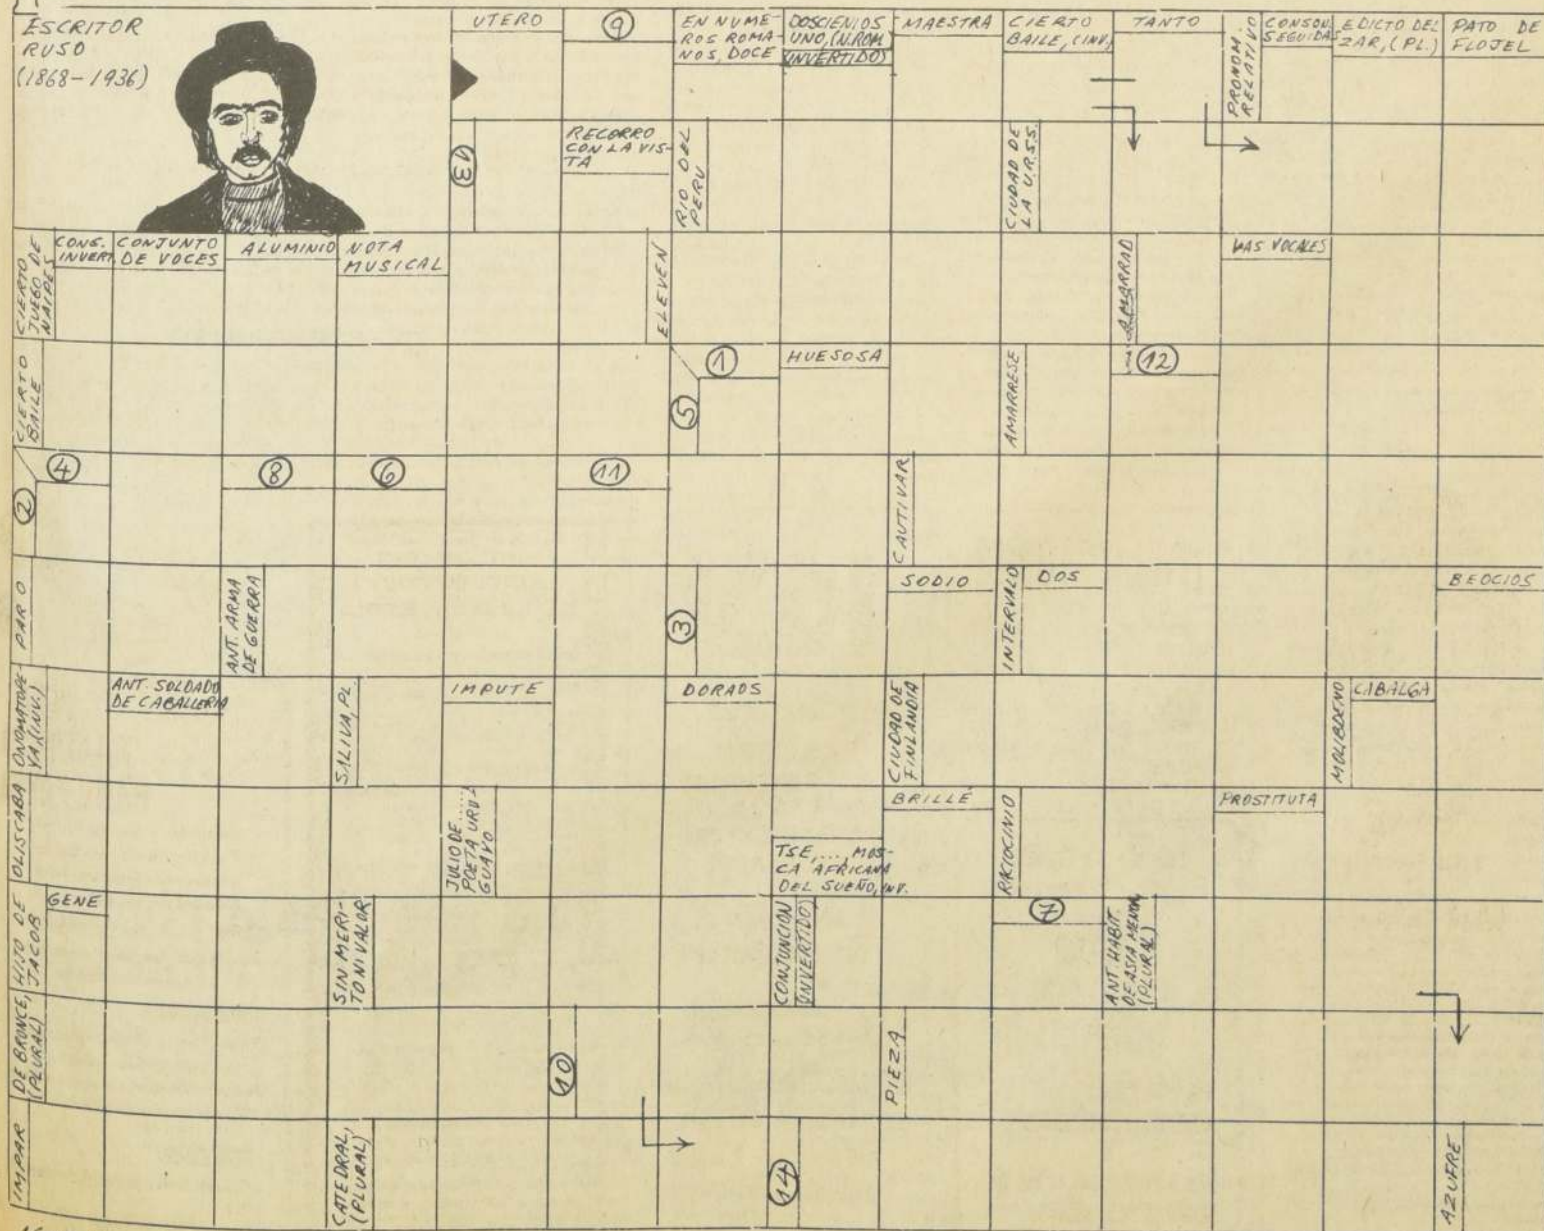 ESCRITOR
RUSO
(1868-1936)
UTERO
9
EN NUME-
ROS ROMA-
NOS, DOCE
DOSCIENTOS
UNO, (N.ROM.
INVERTIDO)
MAESTRA
CIERTO
BAILE, (INV.)
TANTO
PRONOM.
RELATIVO
CONSON.
SEGUIDAS
EDICTO DEL
ZAR, (PL.)
PATO DE
FLOJEL
13
RECORRO
CON LA VIS-
TA
RIO DEL
PERU
CIUDAD DE
LA U.R.S.S.
CIERTO
JUEGO DE
NAIPES
CONS.
INVERT.
CONJUNTO
DE VOCES
ALUMINIO
NOTA
MUSICAL
ELEVEN
AMARRAD
LAS VOCALES
CIERTO
BAILE
1
5
HUESOSA
AMARRESE
12
4
2
8
6
11
CAUTIVAR
PARO
ANT. ARMA
DE GUERRA
3
SODIO
INTERVALO
DOS
BEOCIOS
ONOMATOPE-
YA, (INV.)
ANT. SOLDADO
DE CABALLERIA
SALIVA, PL.
IMPUTE
DORADS
CIUDAD DE
FINLANDIA
MOLIBDENO
CABALGA
OLISCABA
JULIO DE .....
POETA URU-
GUAYO
TSE, ..., MOS-
CA AFRICANA
DEL SUEÑO, INV.
BRILLÉ
RACIOCINIO
PROSTITUTA
HIJO DE
JACOB
GENE
SIN MERI-
TO NI VALOR
CONJUNCION
INVERTIDO)
7
ANT. HABIT.
DE ASIA MENOR,
(PLURAL)
DE BRONCE,
(PLURAL)
10
PIEZA
IMPAR
CATEDRAL,
(PLURAL)
14
AZUFRE